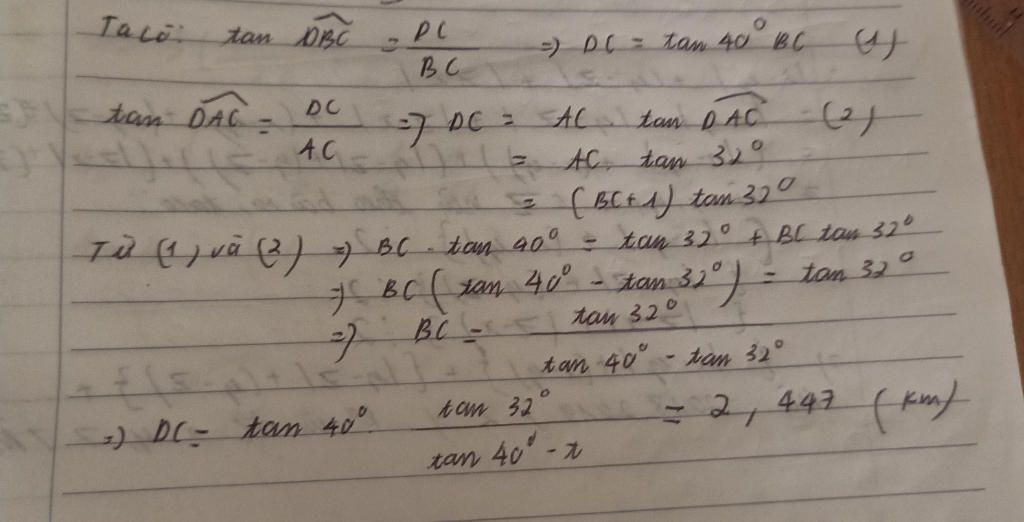 Ta có: tan DBC = DC / BC => DC = tan 40° BC (1)
tan DAC = DC / AC => DC = AC tan DAC - (2)
= AC. tan 32°
= (BC+1) tan 32°
Từ (1) và (2) => BC . tan 40° = tan 32° + BC tan 32°
=> BC ( tan 40° - tan 32° ) = tan 32°
=> BC = tan 32° / tan 40° - tan 32°
=> DC = tan 40° . tan 32° / tan 40° - t = 2,447 (km)